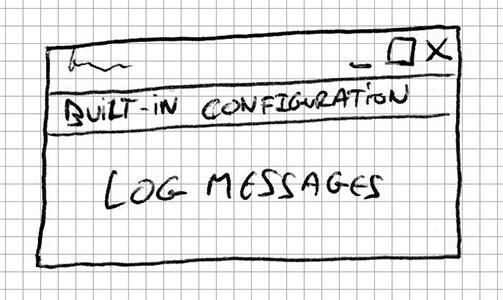 BUILT-IN CONFIGURATION
LOG MESSAGES